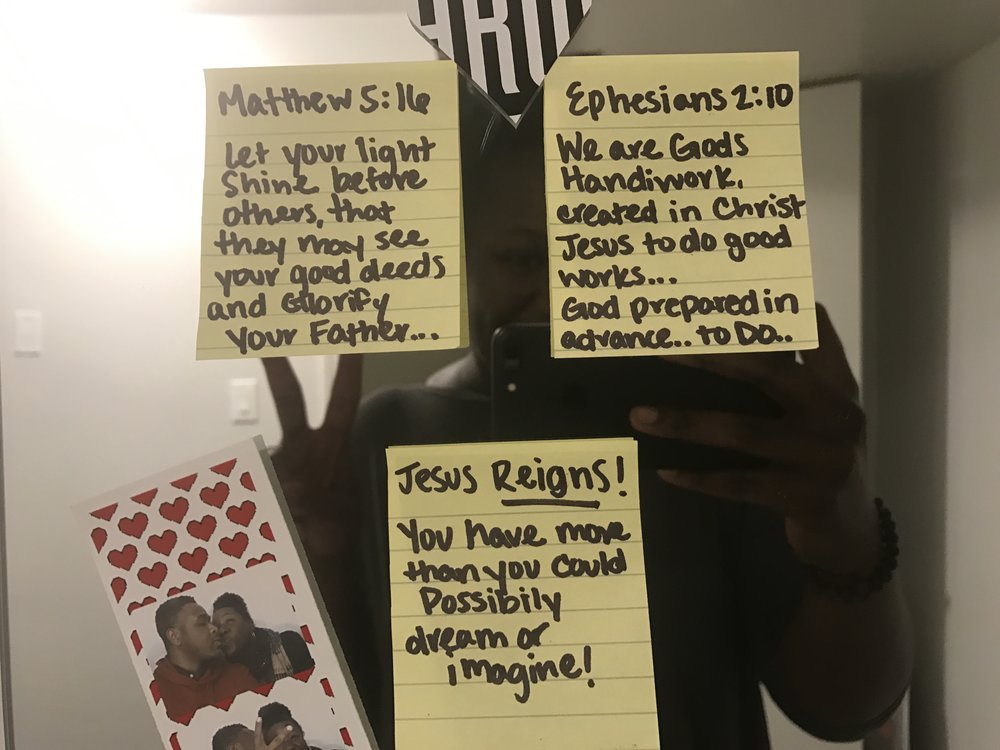 Matthew 5:16
Let your light
Shine before
others, that
they may see
your good deeds
and Glorify
Your Father...
Ephesians 2:10
We are Gods
Handiwork,
created in Christ
Jesus to do good
works...
God prepared in
advance.. to Do..
Jesus Reigns!
You have more
than you could
Possibily
dream or
imagine!